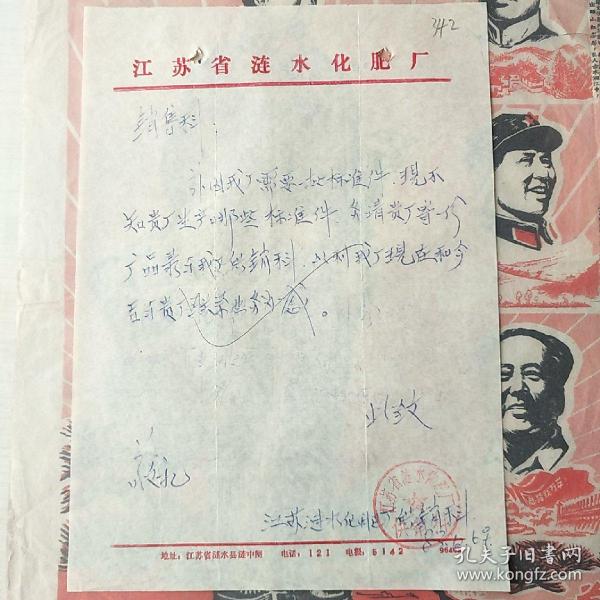 342
江苏省涟水化肥厂
销售科
兹因我厂需要一批标准件，现不
知贵厂生产哪些标准件，务请贵厂寄一份
产品表于我厂供销科，以利我厂现在和今
后与贵厂联系业务为感。
此致
敬礼
江苏涟水化肥厂供销科
地址：江苏省涟水县涟中闸 电话：121 电报：5142
孔夫子旧书网
www.kongfz.com